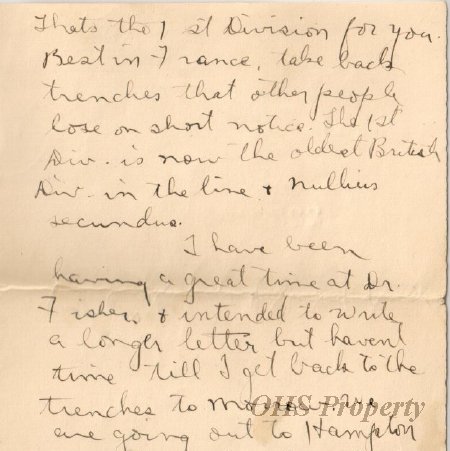 Thats the 1st Division for you.
Best in France, take back
trenches that other people
lose on short notice. The 1st
Div. is now the oldest British
Div. in the line & nullius
secundus.
I have been
having a great time at Dr.
Fishers & intended to write
a longer letter but havent
time till I get back to the
trenches to morrow. We
are going out to Hampton
OHS Property